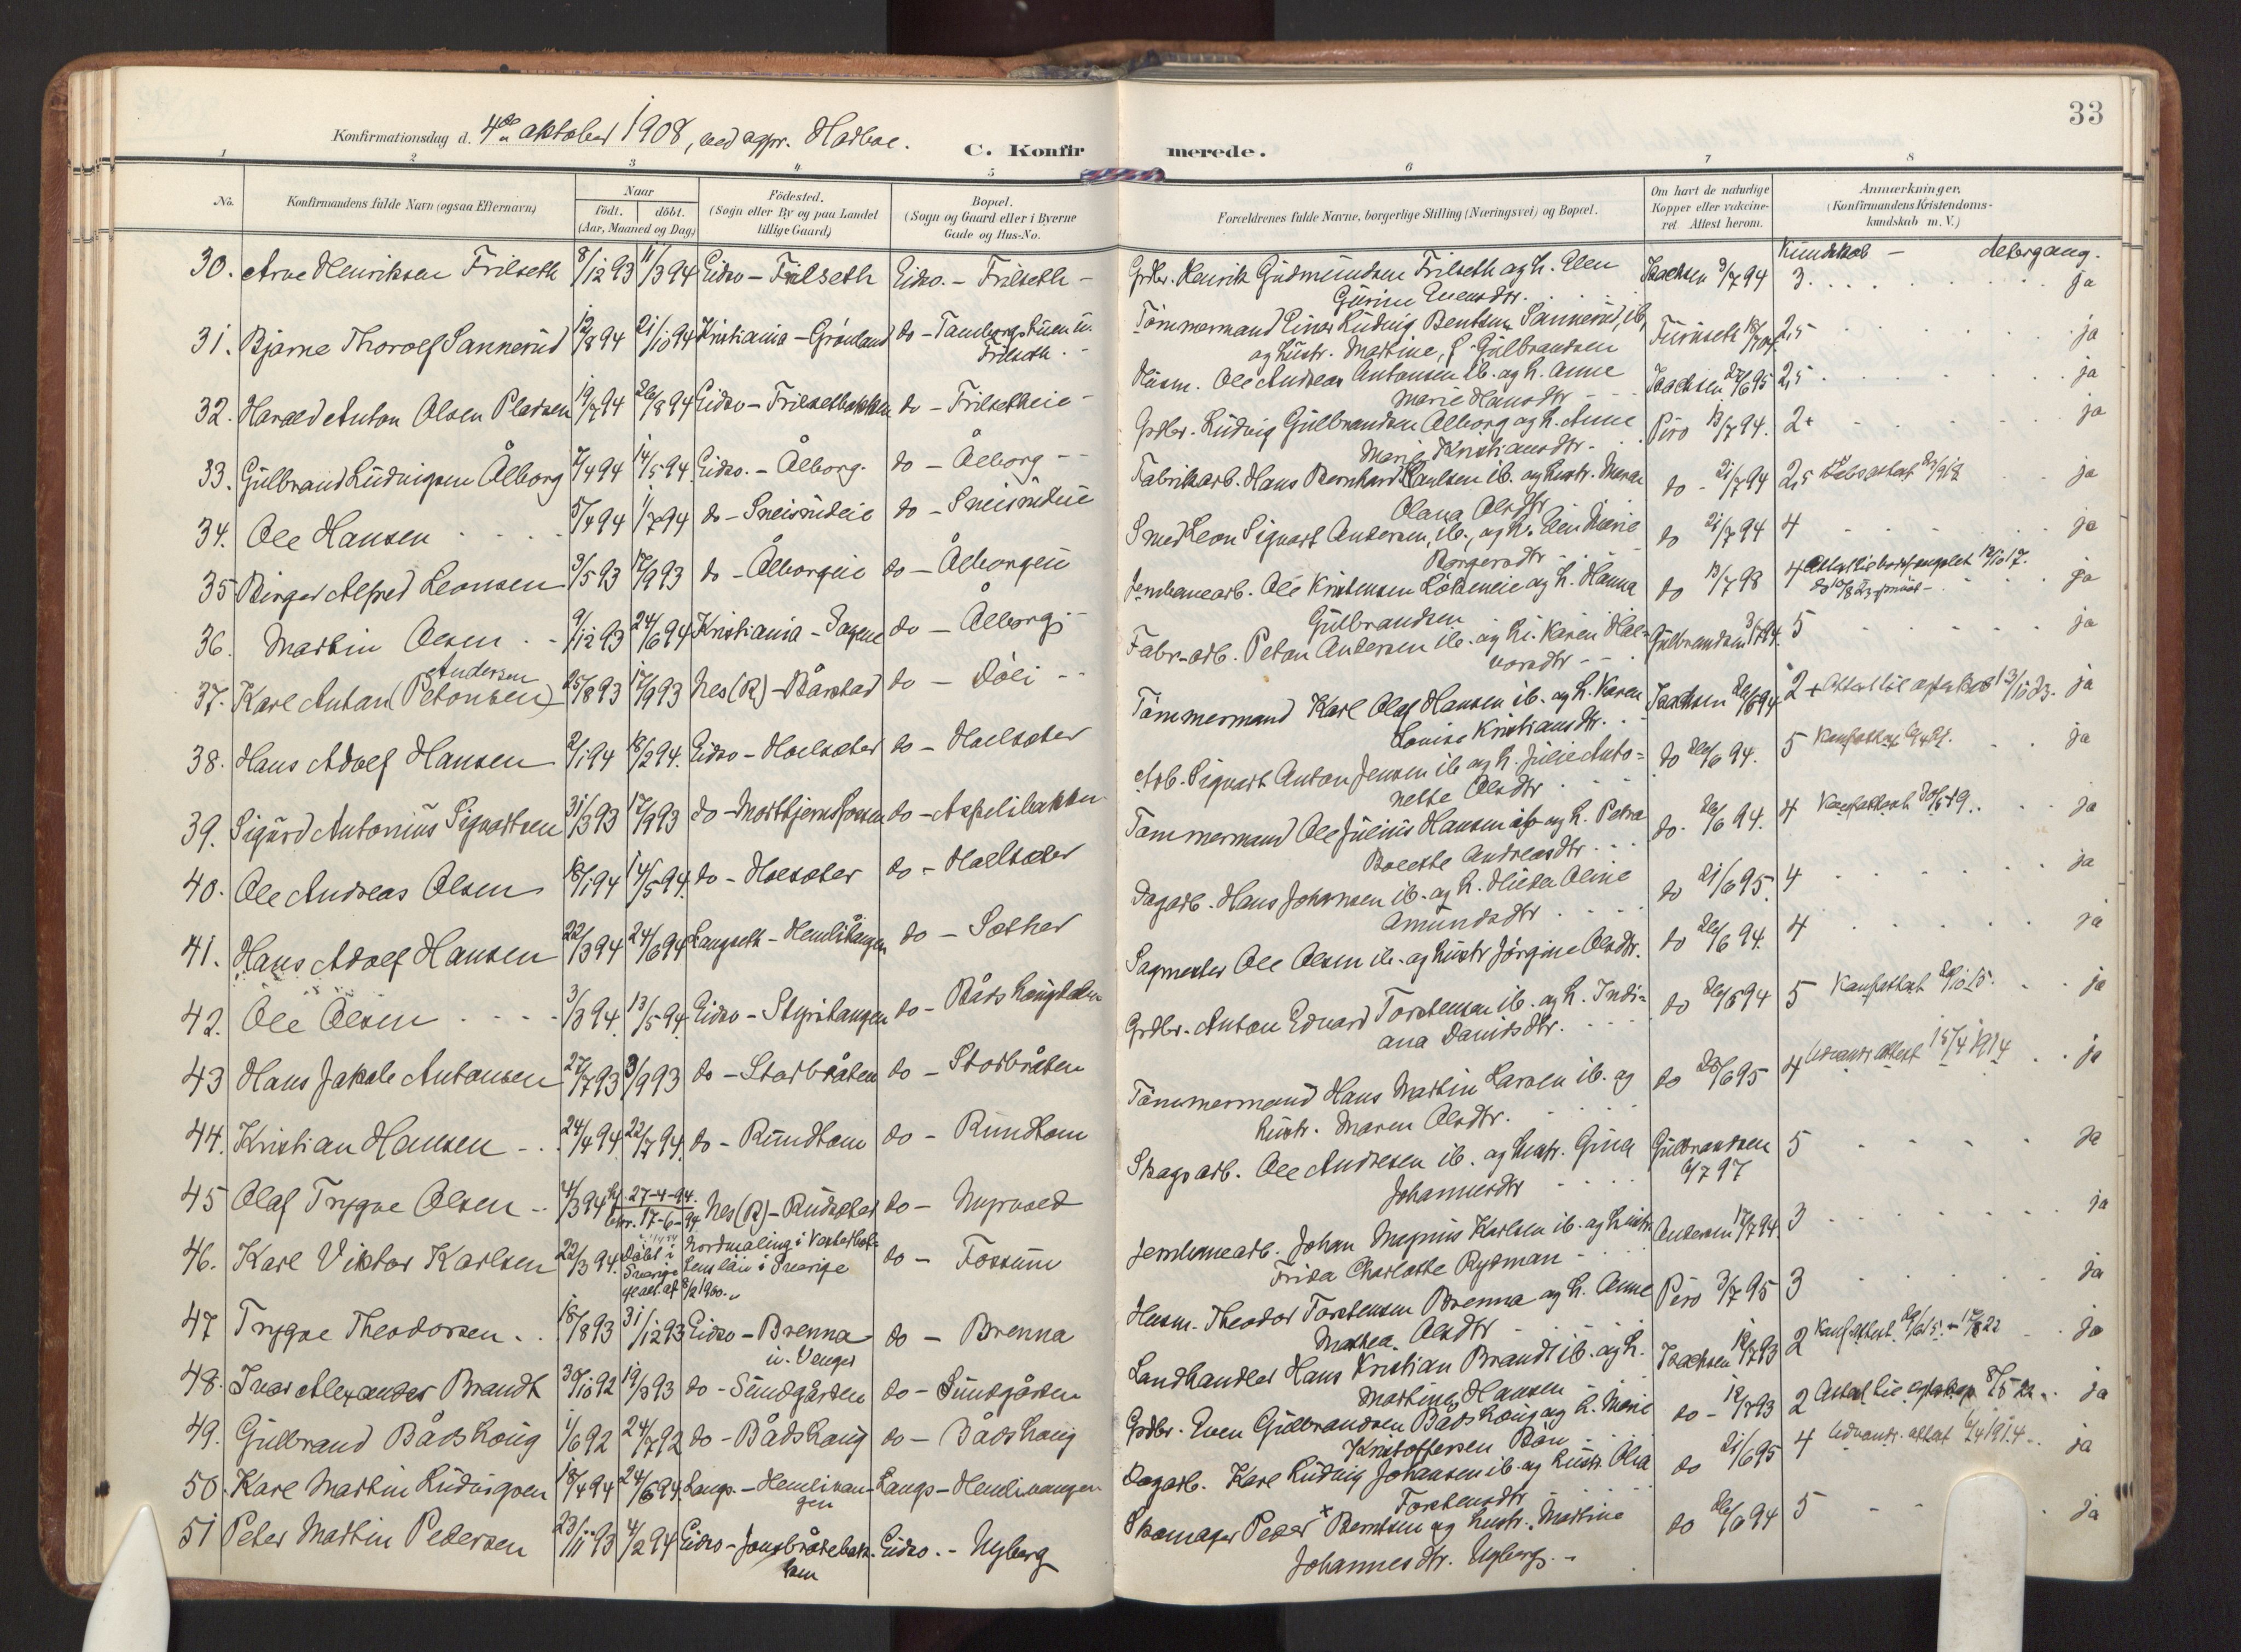 33
Konfirmationsdag d. 4de oktober 1908, ved sgpr. Hadboe.
C. Konfirmerede.
1 2 3 4 5 6 7 8
No.
Konfirmandens fulde Navn (ogsaa Efternavn)
Naar
født. døbt.
(Aar, Maaned og Dag)
Födested.
(Sogn eller By og paa Landet
tillige Gaard)
Bopæl.
(Sogn og Gaard eller i Byerne
Gade og Hus-No.
Forældrenes fulde Navne, borgerlige Stilling (Næringsvei) og Bopæl.
Om havt de naturlige
Kopper eller vaccine-
ret. Attest herom.
Anmærkninger,
(Konfirmandens Kristendoms-
kundskab m. V.)
Kundskab - Altergang.
30. Arne Henriksen Frilseth 8/12 93 11/3 94 Eidsv - Frilseth Eidsv. - Frilseth - Grdbr. Henrik Gudmundsen Frilseth og h. Elen Isachsen 3/7 94 3. ja
Gurine Evensdtr.
31. Bjarne Thorolf Sannerud 12/8 94 21/10 94 Kristiania - Grønland do - Tømmermand Einar Ludvig Bentsen Sannerud, ib, Furuseth 2,5 ja
Frilseth. - og hustr. Martine, f. Gulbrandsen
32. Harald Anton Olsen Pladsen 19/7 94 26/8 94 Eidsv - Frilsetbakken do - Frilsetheie - Husm. Ole Andreas Antonsen ib. og h. Anne Isachsen 22/6 95 2,5 ja
Marie Hansdtr
33. Gulbrand Ludvigsen Ålborg 7/4 94 14/5 94 Eidsv. - Ålborg. do - Ålborg - Grdbr. Ludvig Gulbrandsen Ålborg og h. Anne Piro 13/7 94. 2+ ja
Marie Kristiansdtr.
34. Ole Hansen 5/4 94 1/7 94 do - Sneisrudeie do - Sneisrudeie Fabrikarb. Hans Bernhard Paulsen ib. og hustr. Maren do - 21/7 94 2,5 ja
Olava Olsdtr
35 Birger Alfred Leonsen 3/5 93 17/9 93 do - Ålborgeie do - Ålborgeie Smed Leon Sigvart Andersen, ib., og h. Elen Marie do 21/7 94 4 ja
Borgersdtr
36. Martin Olsen 9/12 93 24/6 94 Kristiania - Sagene do - Ålborg - Jernbanearb. Ole Kristensen og h. Hanna do 13/7 98 4 ja
Gulbrandsen
37. Karl Anton (Petonsen) Andersen 25/8 93 17/9 93 Nes (R) - Bårstad do - Døli - Fabr-arb. Peton Andersen ib. og h. Karen Hal- Gulbrandsen 3/7 94. 5 ja
vorsdtr -
38. Hans Adolf Hansen 2/1 94 18/2 94. Eidsv - Holsæter do - Holsæter Tömmermand Karl Olaf Hansen ib. og h. Karen Isachsen 26/6 94 2+ ja
Louise Kristiansdtr.
39. Sigurd Antonius Sigvartsen 31/3 93 17/9 93 do - do - Aspelibakken Arb. Sigvart Anton Jensen ib og h. Julie Anto= do 26/6 94. 5 ja
nette Olsdtr
40. Ole Andreas Olsen 18/1 94 14/5 94. do - Holsæter do - Holsæter Tømmermand Ole Julius Hansen ib og h. Petra do. 26/6 94. 4 ja
Bolette Andreasdtr.
41. Hans Adolf Hansen 22/3 94 24/6 94 Langseth - Hemlitangen do - Sæther Dagarb. Hans Johansen ib. og h. Hilda Oline do 21/6 95. 4 ja
Amundsdtr
42. Ole Olsen 3/3 94. 13/5 94 Eidsv - Styritangen do - Bådshaugtelen Sagmester Ole Olsen ib. og hustr Jørgine Olsdtr. do 26/6 94. 4 ja
43 Hans Jakob Antonsen 27/7 93 3/9 93 do - Storbråten do - Storbråten Grdbr. Anton Edvard Torstensen ib. og h. Indi= do 26/6 94 5 ja
ana Davidsdtr.
44. Kristian Hansen 24/4 94 22/7 94. do - Rundtom do - Rundtom Tömmermand Hans Martin Larsen ib. og do 26/6 95 4 Udvandr. attest 15/4 1914 ja
hustr. Maren Olsdtr.
45 Olaf Trygve Olsen 4/3 94 27-4-94. Nes (R) - Rudsæter do - Myrvold Skogsarb. Ole Andresen ib. og hustr. Gina Gulbrandsen 5 ja
bekr. 17-6-94. Johannesdtr 6/7 97
46. Karl Viktor Karlsen 22/3 94. Døbt i Nordmaling i Vesterbot- do - Fossum Jernbanearb. Johan Magnus Karlsen ib. og hustr. Andersen 17/7 94. 3 ja
Sverige tens län i Sverige Frida Charlotte Rydman -
47 Trygve Theodorsen 18/8 93 31/12 93 Eidsv - Brenna do - Brenna Husm. Theodor Torstensen Brenna og h. Anne Piro 3/7 95 3 ja
u. Venger Mathea Olsdtr
48. Ivar Alexander Brandt 30/10 92 19/3 93 do - Sundgården do - Sundgården Landhandler Hans Kristian Brandt ib. og h. Isachsen 12/7 93 2 ja
Martine Hansen
49. Gulbrand Bådshoug 1/6 92 24/7 92 do - Bådshoug do - Bådshoug Grdbr. Even Gulbrandsen Bådshoug og h. Marie do - 12/7 93 2 ja
Kristoffersen Bøn
50. Karl Martin Ludvigsen 18/4 94 24/6 94. Langs. - Hemlivan- Langs - Hemlivangen Dagarb. Karl Ludvig Johansen ib. og hustr. Olia do 21/6 95 4 Udvandr. attest 1914 ja
gen Torstensdtr
51 Peter Martin Pedersen 23/11 93 4/2 94 Eidsv - Jonsbråtebak- Eidsv. - Nyberg Skomager Peder Berntsen og hustr. Martine do 26/6 94 5 ja
ken Johannesdtr. Nyberg. -